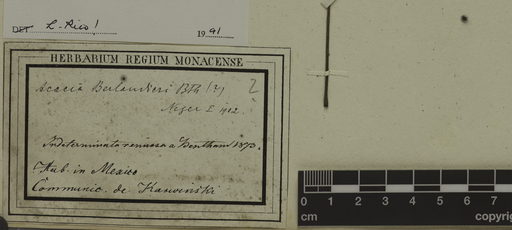 DET. L. Rico! 1991
HERBARIUM REGIUM MONACENSE
Acacia Berlandieri Bth (?) 2
Indeterminata remissa a Bentham 1873.
Hab. in Mexico
Communic. de Karwinski
0 1 2 3 4 5 6 7
cm copyrig